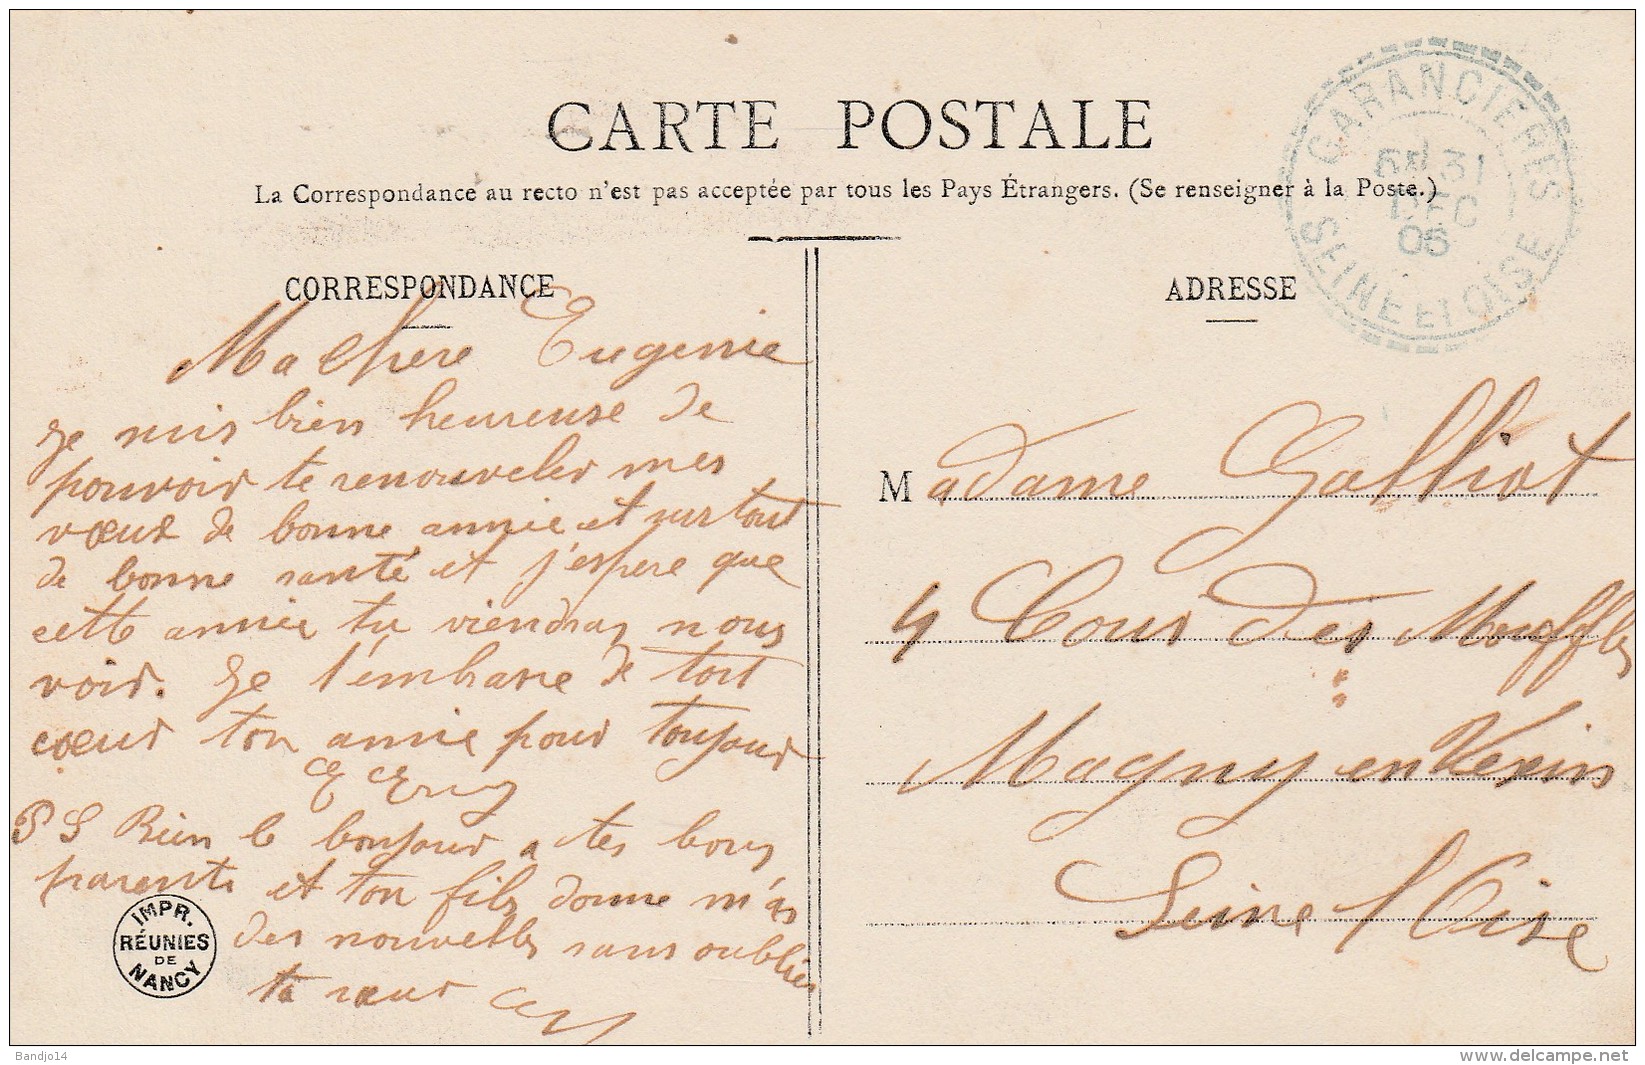 CARTE POSTALE
La Correspondance au recto n'est pas acceptée par tous les Pays Étrangers. (Se renseigner à la Poste.)
GARANCIERES
31
DEC
06
SEINE ET OISE
CORRESPONDANCE
Ma chere Eugenie
Je suis bien heureuse de
pouvoir te renouveler mes
vœux de bonne annie et surtout
de bonne santé et j'espere que
cette annie tu viendras nous
voir. Je t'embrasse de tout
cœur ton amie pour toujour
P S Bien le bonjour a tes bons
parents et ton fils donne m'as
des nouvelles sans oublier
ta sœur
IMPR.
RÉUNIES
DE
NANCY
ADRESSE
Madame Galliot
4 Cour des Moffles
Magny en Vexin
Seine / Oise
Bandjo14
www.delcampe.net